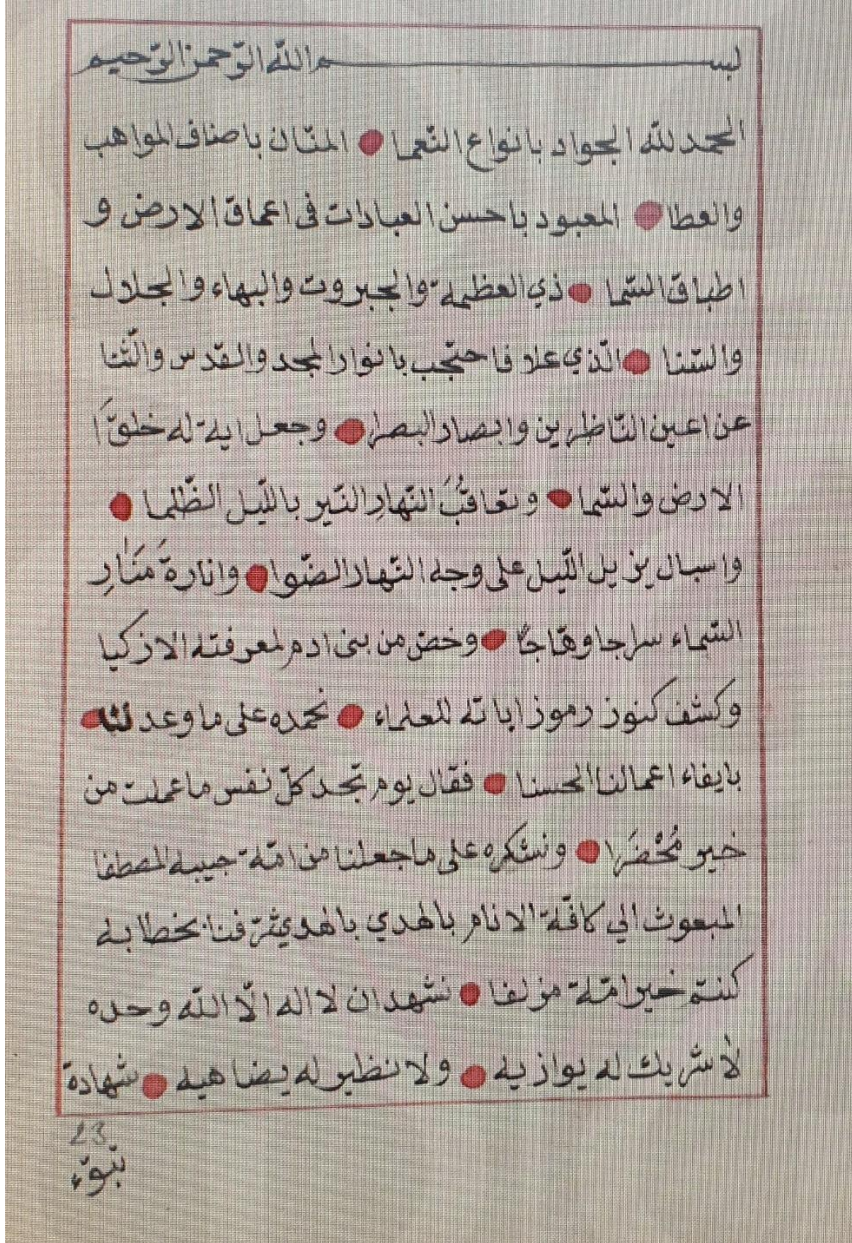 بسم الله الرّحمن الرّحيم
الحمد لله الجواد بانواع النّعما المنّان باصناف المواهب
والعطا المعبود باحسن العبادات فى اعماق الارض و
اطباق السّما ذي العظمة والجبروت والبهاء والجلال
والسّنا الّذي علا فاحتجب بانوار المجد والقدس والثّنا
عن اعين النّاظرين وابصار البصرا وجعل اية له خلقَ ا
الارض والسّما وتعاقُبَ النّهارِ النّير باللّيل الظّلما
واسبال يزيل اللّيل على وجه النّهار الضّوا وانارةَ مَنَارِ
السّماء سراجا وهّاجًا وخصّ من بنى ادم لمعرفته الازكيا
وكشف كنوز رموز اياته للعلماء نحمده على ما وعد لنا
بايفاء اعمالنا الحسنا فقال يوم تجد كلّ نفس ما عملت من
خير مُحْضَرا ونشكره على ما جعلنا من امّة حبيبه المصطفا
المبعوث الي كافّة الانام بالهدي شرّفنا بخطابه
كنتم خير امّة مؤلفا نشهد ان لا اله الّا الله وحده
لا شريك له يوازيه ولا نظير له يضاهيه شهادة
23
تبّوء